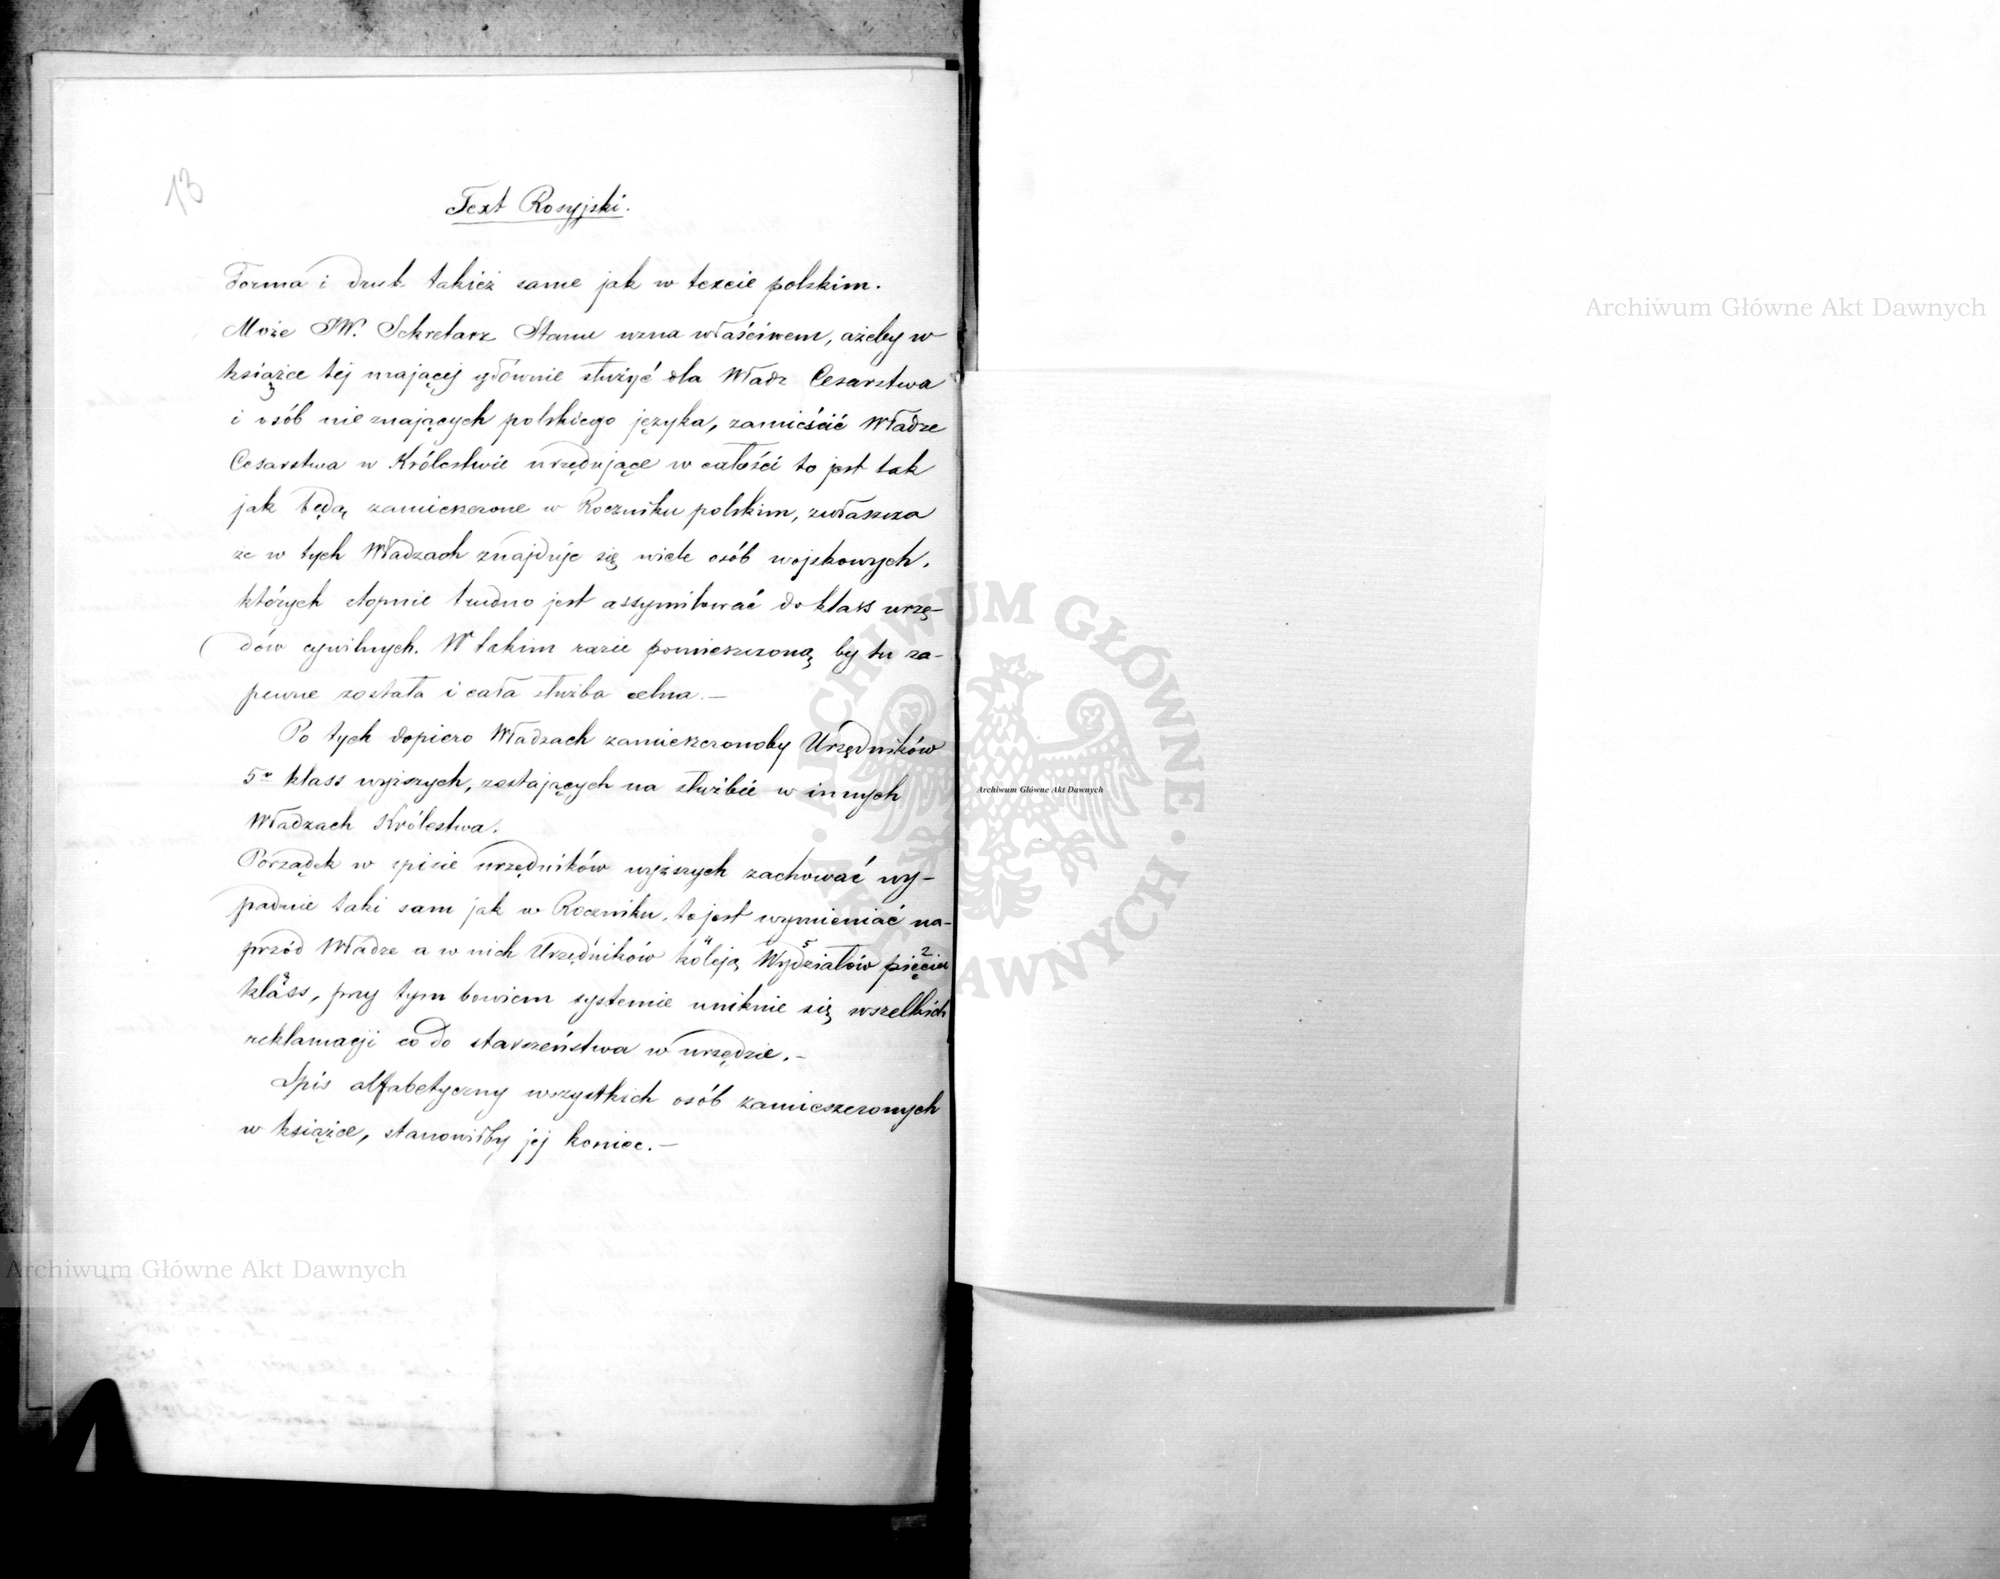 13
Text Rosyjski.
Forma i druk takież same jak w texcie polskim.
Może JW. Sekretarz Stanu uzna właściwem, ażeby w
książce tej mającej głównie służyć dla Władz Cesarstwa
i osób nieznających polskiego języka, zamieścić Władze
Cesarstwa w Królestwie urzędujące w całości to jest tak
jak będą zamieszczone w Roczniku polskim, zwłaszcza
że w tych Władzach znajduje się wiele osób wojskowych,
których stopnie trudno jest assymilować do klass urzę-
dów cywilnych. W takim razie pomieszczoną by tu za-
pewne została i cała służba celna.—
Po tych dopiero Władzach zamieszczonoby Urzędników
5u klass wyższych, zostających na służbie w innych
Władzach Królestwa.
Porządek w spisie urzędników wyższych zachować wy-
padnie taki sam jak w Roczniku, to jest wymieniać na-
przód Władze a w nich Urzędników koleją Wydziałów pięciu
klass, przy tym bowiem systemie uniknie się wszelkich
reklamacji co do starszeństwa w urzędzie.—
Spis alfabetyczny wszystkich osób zamieszczonych
w książce, stanowiłby jej koniec.—
Archiwum Główne Akt Dawnych
Archiwum Główne Akt Dawnych
Archiwum Główne Akt Dawnych
ARCHIWUM GŁÓWNE AKT DAWNYCH